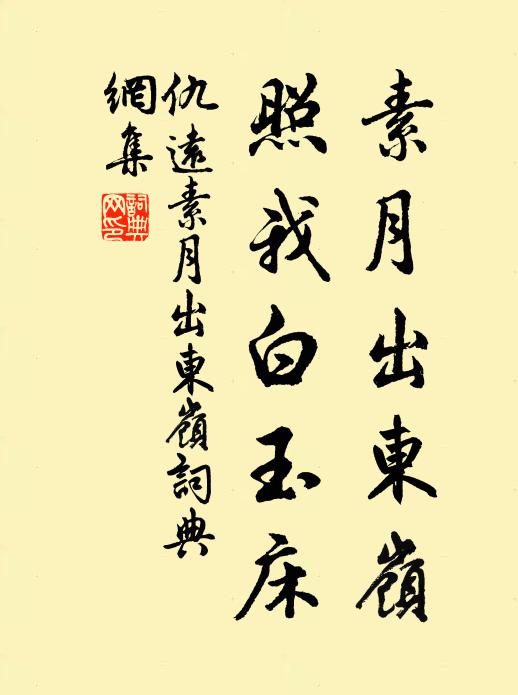 素月出東嶺
照我白玉床
仇遠素月出東嶺詞典
網集
詞典
网印